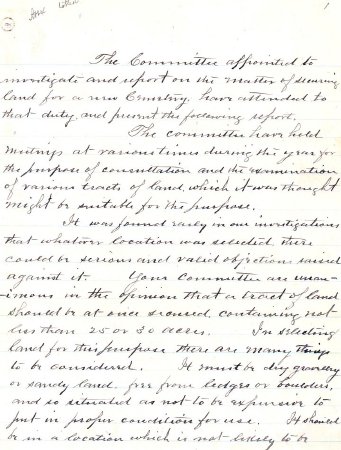 1
The Committee appointed to
investigate and report on the matter of securing
land for a new Cemetery, have attended to
that duty, and present the following report.
The committee have held
meetings at various times during the year for
the purpose of consultation and the examination
of various tracts of land, which it was thought
might be suitable for the purpose.
It was found early in our investigations
that whatever location was selected there
could be serious and valid objections raised
against it. Your Committee are unan-
-imous in the opinion that a tract of land
should be at once secured, containing not
less than 25 or 30 acres. In selecting
land for this purpose there are many things
to be considered. It must be dry gravelly
or sandy land, free from ledges or boulders,
and so situated as not to be expensive to
put in proper condition for use. It should
be in a location which is not likely to be